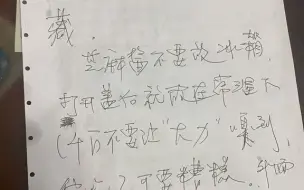 藏.
芝麻酱不要放冰箱,
打开盖后就放在常温下
(千万不要让"大力"嗅到,
可要糟糕.